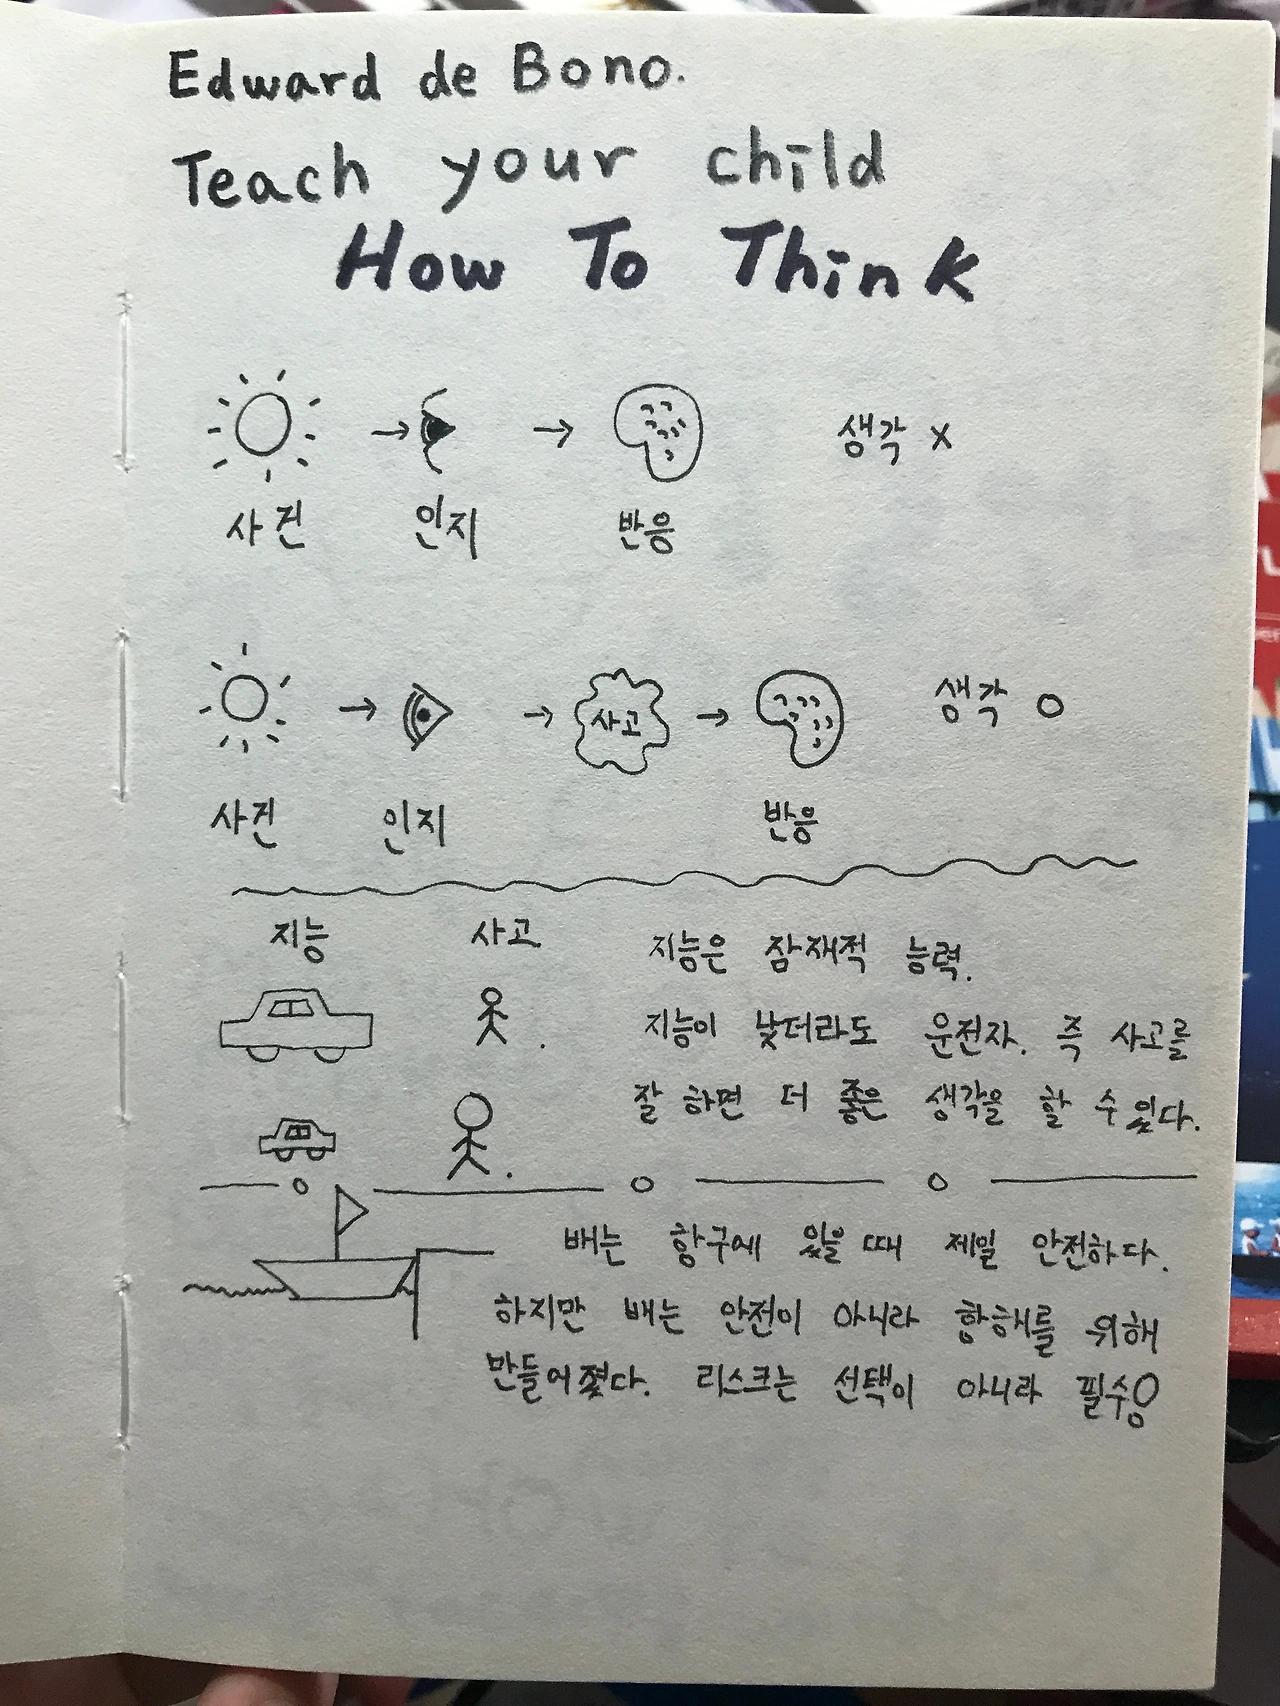 Edward de Bono.
Teach your child
How To Think
생각 x
사건 인지 반응
사고
생각 o
사건 인지 반응
지능 사고
지능은 잠재적 능력.
지능이 낮더라도 운전자. 즉 사고를
잘 하면 더 좋은 생각을 할 수 있다.
배는 항구에 있을 때 제일 안전하다.
하지만 배는 안전이 아니라 항해를 위해
만들어졌다. 리스크는 선택이 아니라 필수!